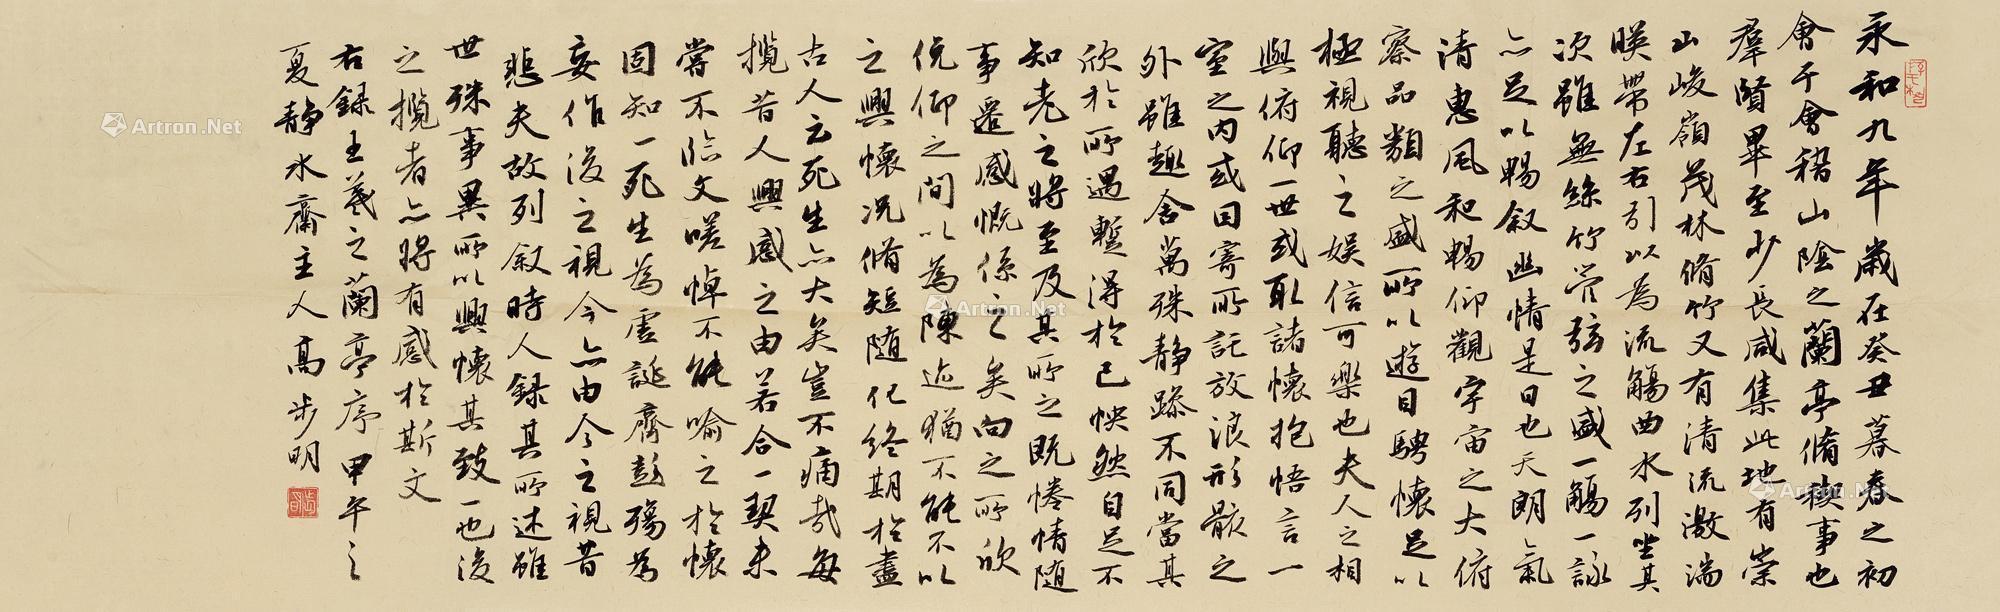 永和九年歲在癸丑暮春之初
會于會稽山陰之蘭亭脩稧事也
羣賢畢至少長咸集此地有崇
山峻嶺茂林脩竹又有清流激湍
暎帶左右引以為流觴曲水列坐其
次雖無絲竹管弦之盛一觴一詠
亦足以暢敘幽情是日也天朗氣
清惠風和暢仰觀宇宙之大俯
察品類之盛所以遊目騁懷足以
極視聽之娛信可樂也夫人之相
與俯仰一世或取諸懷抱悟言一
室之內或因寄所託放浪形骸之
外雖趣舍萬殊靜躁不同當其
欣於所遇蹔得於己怏然自足不
知老之將至及其所之既惓情隨
事遷感慨係之矣向之所欣
俛仰之間以為陳迹猶不能不以
之興懷況脩短隨化終期於盡
古人云死生亦大矣豈不痛哉每
攬昔人興感之由若合一契未
嘗不臨文嗟悼不能喻之於懷
固知一死生為虛誕齊彭殤為
妄作後之視今亦由今之視昔
悲夫故列敘時人錄其所述雖
世殊事異所以興懷其致一也後
之攬者亦將有感於斯文
右錄王羲之蘭亭序甲午之
夏靜水齋主人高步明
Artron.Net
Artron.Net
Artron.Net